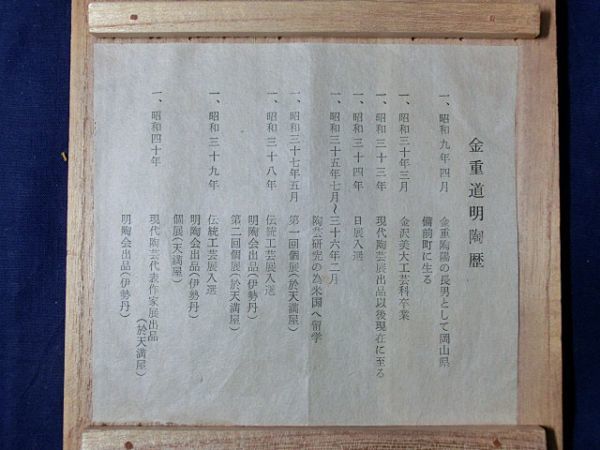 金重道明陶歴
一、昭和九年四月　金重陶陽の長男として岡山県
備前町に生る
一、昭和三十年三月　金沢美大工芸科卒業
一、昭和三十三年　現代陶芸展出品以後現在に至る
一、昭和三十四年　日展入選
一、昭和三十五年七月〜三十六年二月
陶芸研究の為米国へ留学
一、昭和三十七年五月　第一回個展（於天満屋）
一、昭和三十八年　伝統工芸展入選
明陶会出品（伊勢丹）
第二回個展（於天満屋）
一、昭和三十九年　伝統工芸展入選
明陶会出品（伊勢丹）
個展（天満屋）
一、昭和四十年　現代陶芸代表作家展出品
（於天満屋）
明陶会出品（伊勢丹）